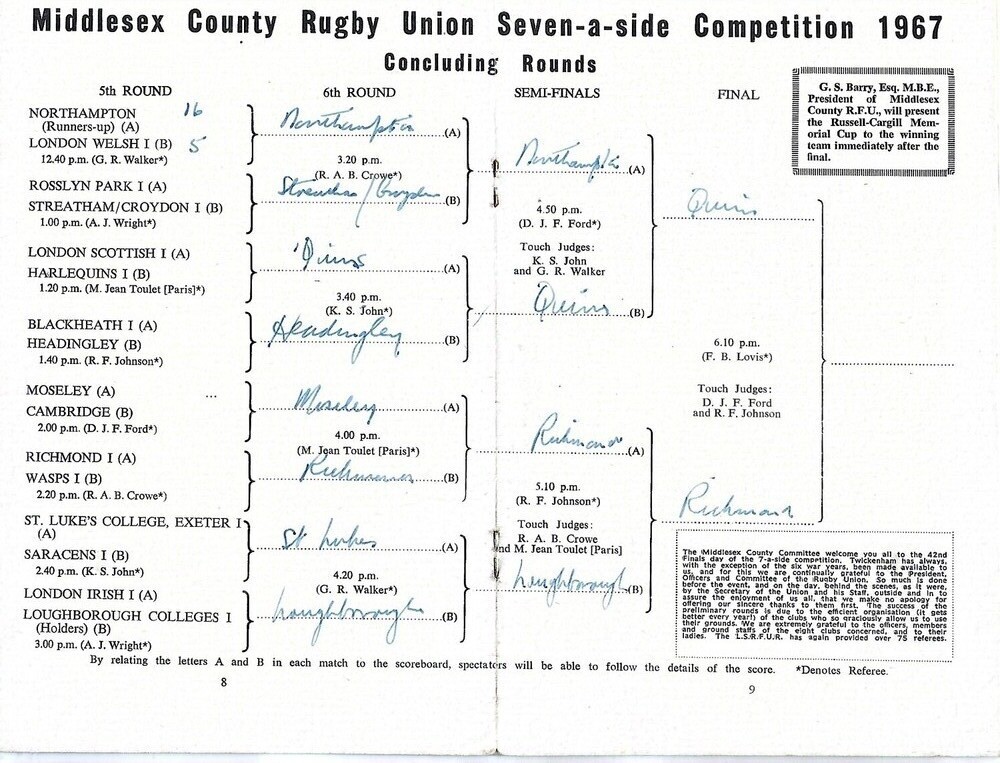 Middlesex County Rugby Union Seven-a-side Competition 1967
Concluding Rounds
G. S. Barry, Esq. M.B.E.,
President of Middlesex
County R.F.U., will present
the Russell-Cargill Mem-
orial Cup to the winning
team immediately after the
final.
5th ROUND
NORTHAMPTON 16
(Runners-up) (A)
LONDON WELSH I (B) 5
12.40 p.m. (G. R. Walker*)
ROSSLYN PARK I (A)
STREATHAM/CROYDON I (B)
1.00 p.m. (A. J. Wright*)
LONDON SCOTTISH I (A)
HARLEQUINS I (B)
1.20 p.m. (M. Jean Toulet [Paris]*)
BLACKHEATH I (A)
HEADINGLEY (B)
1.40 p.m. (R. F. Johnson*)
MOSELEY (A)
CAMBRIDGE (B)
2.00 p.m. (D. J. F. Ford*)
RICHMOND I (A)
WASPS I (B)
2.20 p.m. (R. A. B. Crowe*)
ST. LUKE'S COLLEGE, EXETER I
(A)
SARACENS I (B)
2.40 p.m. (K. S. John*)
LONDON IRISH I (A)
LOUGHBOROUGH COLLEGES I
(Holders) (B)
3.00 p.m. (A. J. Wright*)
6th ROUND
Northampton (A)
3.20 p.m.
(R. A. B. Crowe*)
Streatham/Croydon (B)
'Quins (A)
3.40 p.m.
(K. S. John*)
Headingley (B)
Moseley (A)
4.00 p.m.
(M. Jean Toulet [Paris]*)
Richmond (B)
St Lukes (A)
4.20 p.m.
(G. R. Walker*)
Loughborough (B)
SEMI-FINALS
Northampton (A)
4.50 p.m.
(D. J. F. Ford*)
Touch Judges:
K. S. John
and G. R. Walker
Quins (B)
Richmond (A)
5.10 p.m.
(R. F. Johnson*)
Touch Judges:
R. A. B. Crowe
and M. Jean Toulet [Paris]
Loughborough (B)
FINAL
Quins
6.10 p.m.
(F. B. Lovis*)
Touch Judges:
D. J. F. Ford
and R. F. Johnson
Richmond
The Middlesex County Committee welcome you all to the 42nd
Finals day of the 7-a-side competition. Twickenham has always,
with the exception of the six war years, been made available to
us, and for this we are continually grateful to the President,
Officers and Committee of the Rugby Union. So much is done
before the event, and on the day, behind the scenes, as it were,
by the Secretary of the Union and his Staff, outside and in to
assure the enjoyment of us all, that we make no apology for
offering our sincere thanks to them first. The success of the
preliminary rounds is due to the efficient organisation (it gets
better every year!) of the clubs who so graciously allow us to use
their grounds. We are extremely grateful to the officers, members
and ground staffs of the eight clubs concerned, and to their
ladies. The L.S.R.F.U.R. has again provided over 75 referees.
By relating the letters A and B in each match to the scoreboard, spectators will be able to follow the details of the score. *Denotes Referee.
8
9